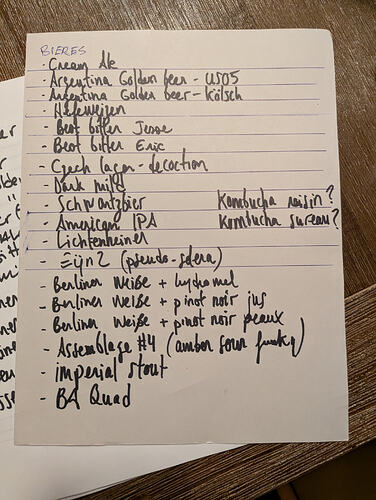 BIERES
- Cream Ale
- Argentina Golden beer - US05
- Argentina Golden beer - Kölsch
- Hefeweizen
- Best bitter Jesse
- Best bitter Eric
- Czech lager - decoction
- Dark mild
- Schwartzbier
Kombucha raisin ?
- American IPA
Kombucha sureau ?
- Lichtenheiner
- (pseudo-solera)
- Berliner Weiße + hydromel
- Berliner Weiße + pinot noir jus
- Berliner Weiße + pinot noir peaux
- Assemblage #4 (amber sour funky)
- imperial stout
- BA Quad